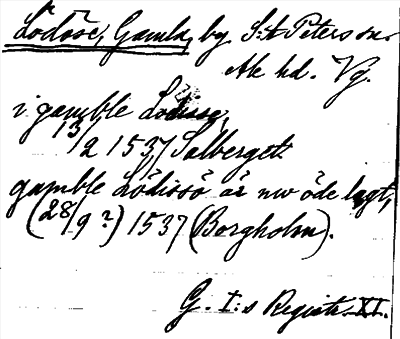 Lödöse, Gamla, by S:t Peters sn.
Ale hd. Vg.
i gamble Lödisse,
13/2 1537 Salberget.
gamble Lödissö är nw öde lagt,
(28/9 ?) 1537 (Borgholm).
G. I:s Registr. XI.